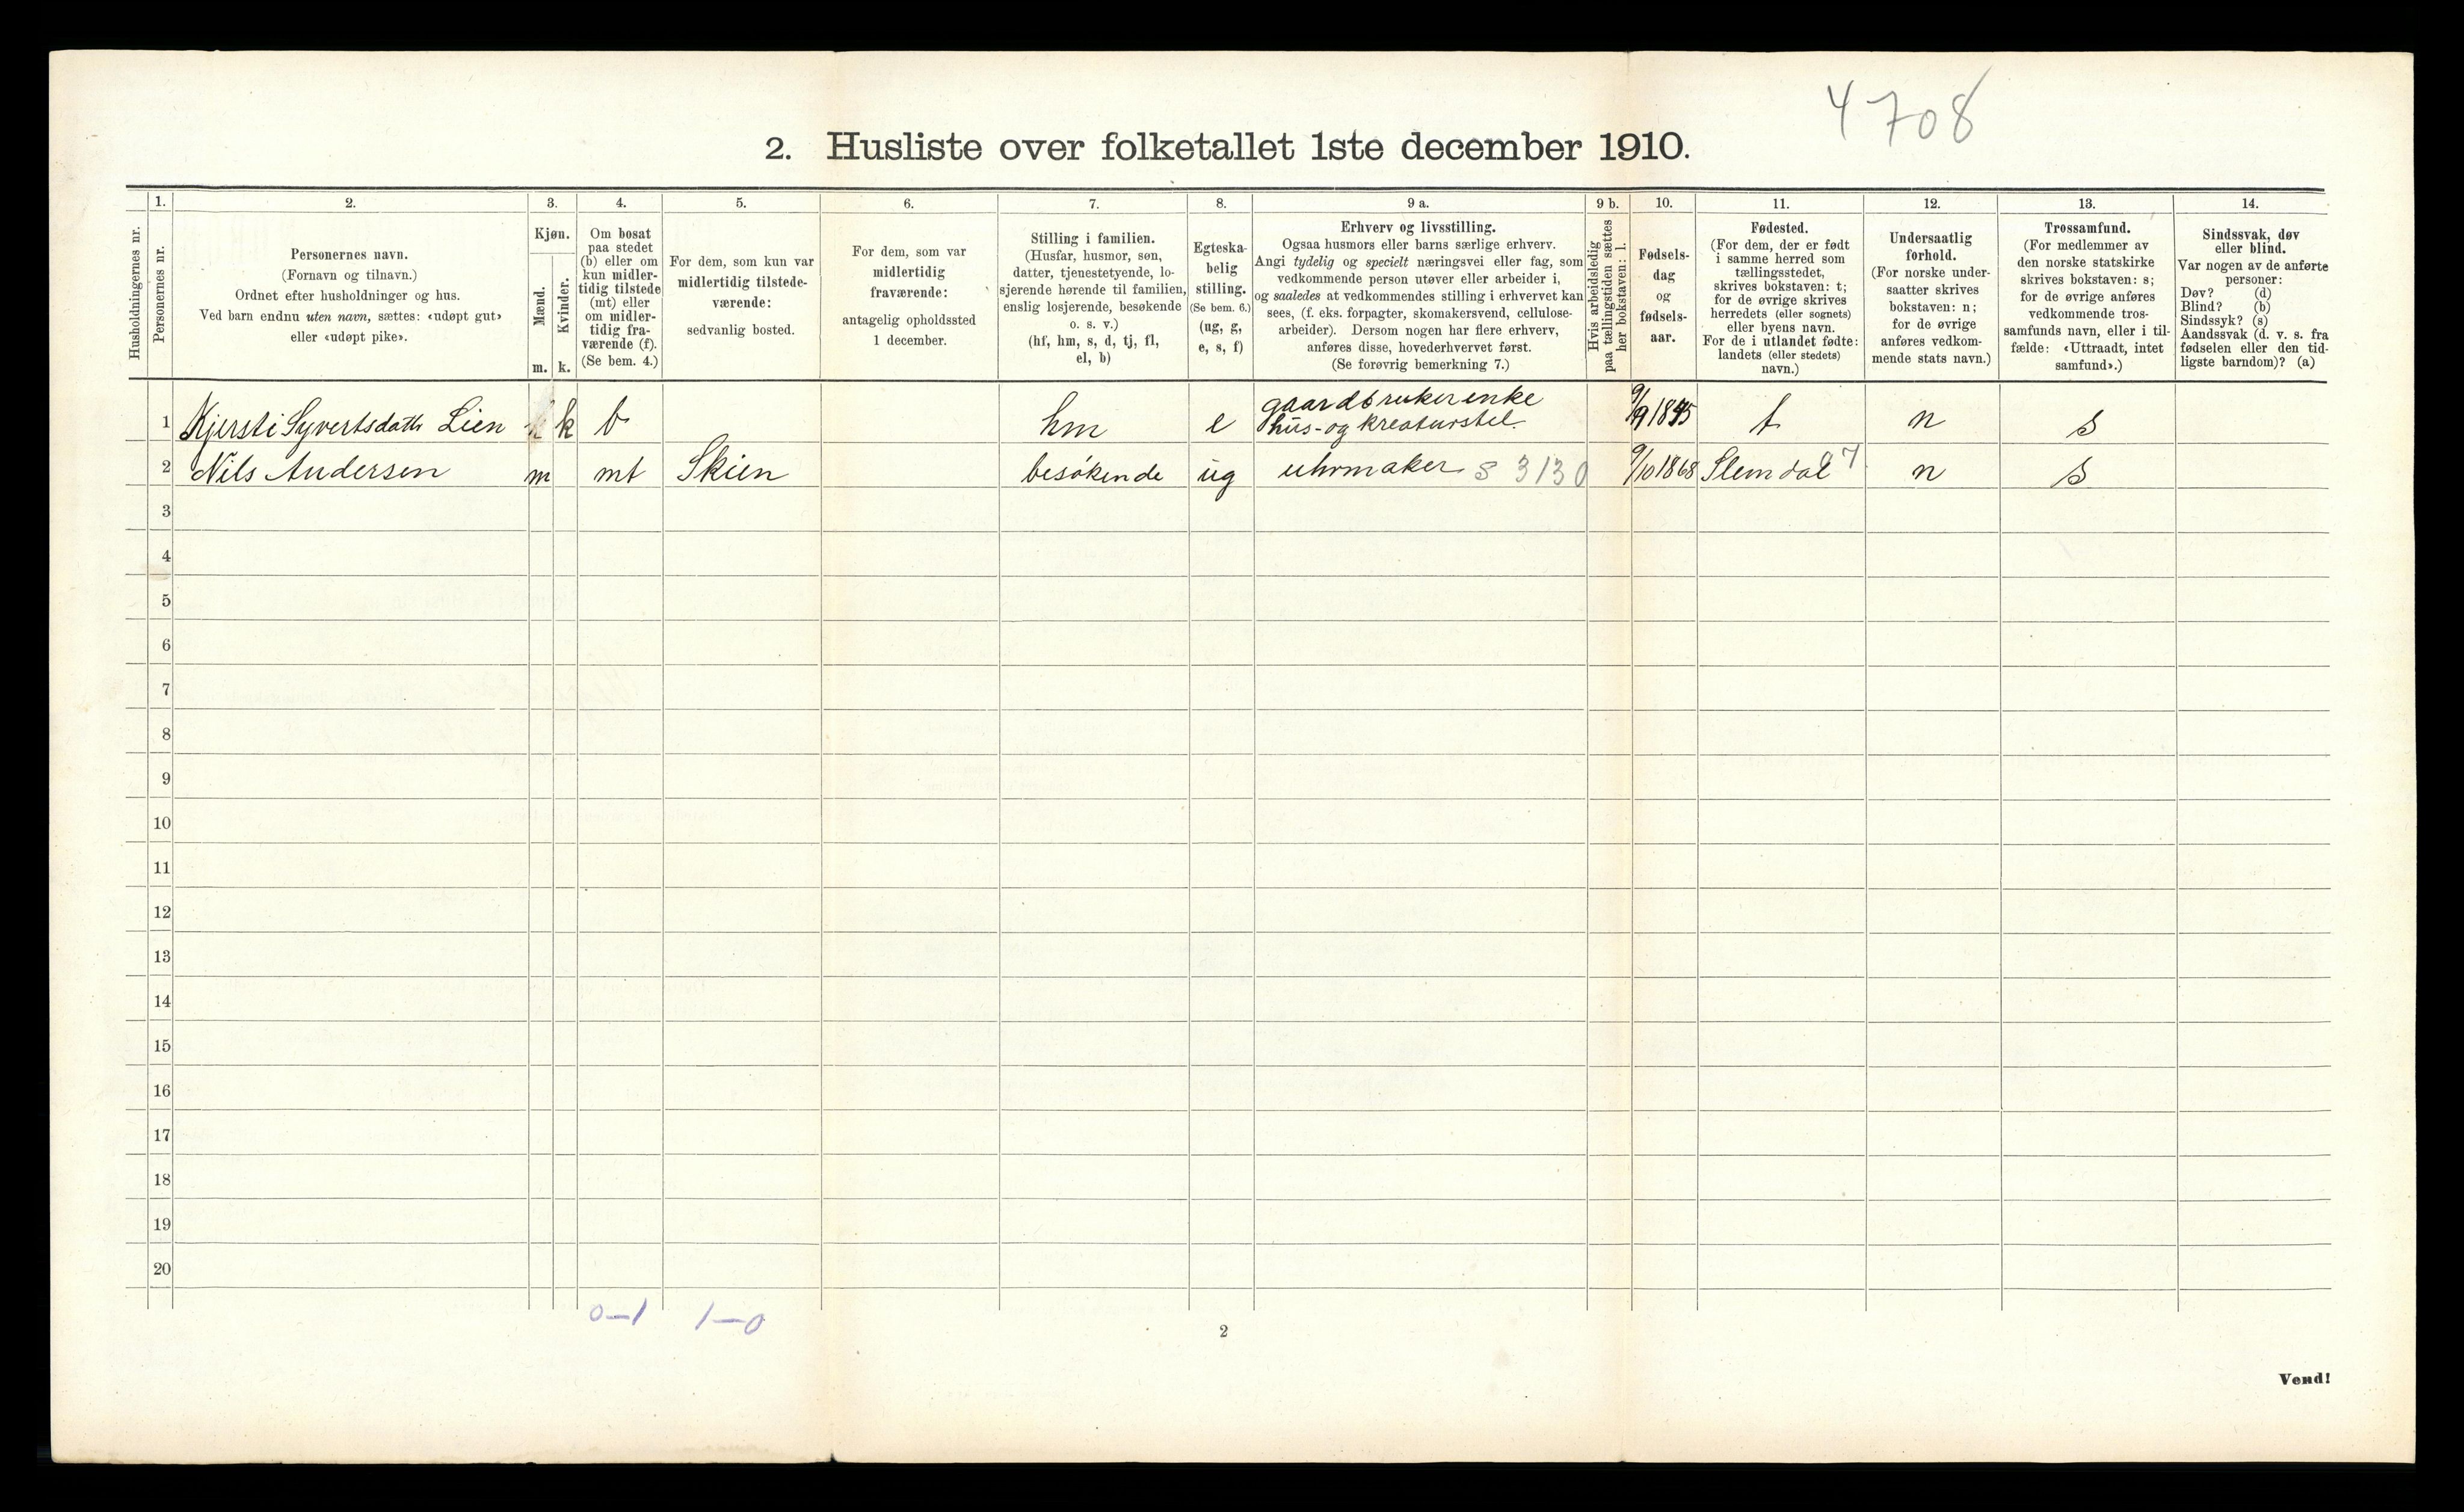 4708
2. Husliste over folketallet 1ste december 1910.
Husholdningernes nr.
1.
Personernes nr.
2.
Personernes navn.
(Fornavn og tilnavn.)
Ordnet efter husholdninger og hus.
Ved barn endnu uten navn, sættes: «udøpt gut»
eller «udøpt pike».
3.
Kjøn.
Mænd.
m.
Kvinder.
k.
4.
Om bosat
paa stedet
(b) eller om
kun midler-
tidig tilstede
(mt) eller
om midler-
tidig fra-
værende (f).
(Se bem. 4.)
5.
For dem, som kun var
midlertidig tilstede-
værende:
sedvanlig bosted.
6.
For dem, som var
midlertidig
fraværende:
antagelig opholdssted
1 december.
7.
Stilling i familien.
(Husfar, husmor, søn,
datter, tjenestetyende, lo-
sjerende hørende til familien,
enslig losjerende, besøkende
o. s. v.)
(hf, hm, s, d, tj, fl,
el, b)
8.
Egteska-
belig
stilling.
(Se bem. 6.)
(ug, g,
e, s, f)
9 a.
Erhverv og livsstilling.
Ogsaa husmors eller barns særlige erhverv.
Angi tydelig og specielt næringsvei eller fag, som
vedkommende person utøver eller arbeider i,
og saaledes at vedkommendes stilling i erhvervet kan
sees, (f. eks. forpagter, skomakersvend, cellulose-
arbeider). Dersom nogen har flere erhverv,
anføres disse, hovederhvervet først.
(Se forøvrig bemerkning 7.)
9 b.
Hvis arbeidsledig
paa tællingstiden sættes
her bokstaven: l.
10.
Fødsels-
dag
og
fødsels-
aar.
11.
Fødested.
(For dem, der er født
i samme herred som
tællingsstedet,
skrives bokstaven: t;
for de øvrige skrives
herredets (eller sognets)
eller byens navn.
For de i utlandet fødte:
landets (eller stedets)
navn.)
12.
Undersaatlig
forhold.
(For norske under-
saatter skrives
bokstaven: n;
for de øvrige
anføres vedkom-
mende stats navn.)
13.
Trossamfund.
(For medlemmer av
den norske statskirke
skrives bokstaven: s;
for de øvrige anføres
vedkommende tros-
samfunds navn, eller i til-
fælde: «Uttraadt, intet
samfund».)
14.
Sindssvak, døv
eller blind.
Var nogen av de anførte
personer:
Døv? (d)
Blind? (b)
Sindssyk? (s)
Aandssvak (d. v. s. fra
fødselen eller den tid-
ligste barndom)? (a)
1 Kjersti Syvertsdatter Lien k b hm e gaardbrukerenke
hus- og kreaturstel t n s
2 Nils Andersen m mt Skien besøkende ug uhrmaker s 3130 9/10 1868 Slemdal 7 n s
3
4
5
6
7
8
9
10
11
12
13
14
15
16
17
18
19
20
0–1 1–0
2
Vend!